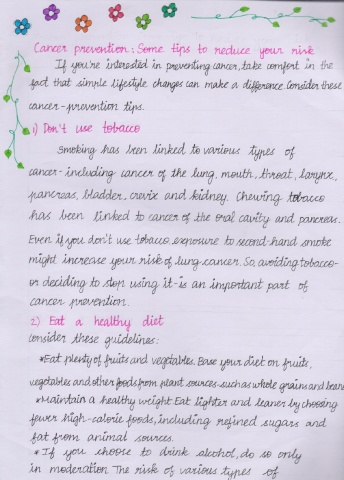 Cancer prevention: Some tips to reduce your risk
If you're interested in preventing cancer, take comfort in the
fact that simple lifestyle changes can make a difference. Consider these
cancer-prevention tips.
1) Don't use tobacco
Smoking has been linked to various types of
cancer-including cancer of the lung, mouth, throat, larynx,
pancreas, bladder, crevix and kidney. Chewing tobacco
has been linked to cancer of the oral cavity and pancreas.
Even if you don't use tobacco, exposure to second-hand smoke
might increase your risk of lung cancer. So, avoiding tobacco-
or deciding to stop using it-is an important part of
cancer prevention.
2) Eat a healthy diet
Consider these guidelines:
*Eat plenty of fruits and vegetables. Base your diet on fruits,
vegetables and other foods from plant sources-such as whole grains and beans
*Maintain a healthy weight. Eat lighter and leaner by choosing
fewer high-calorie foods, including refined sugars and
fat from animal sources.
*If you choose to drink alcohol, do so only
in moderation. The risk of various types of